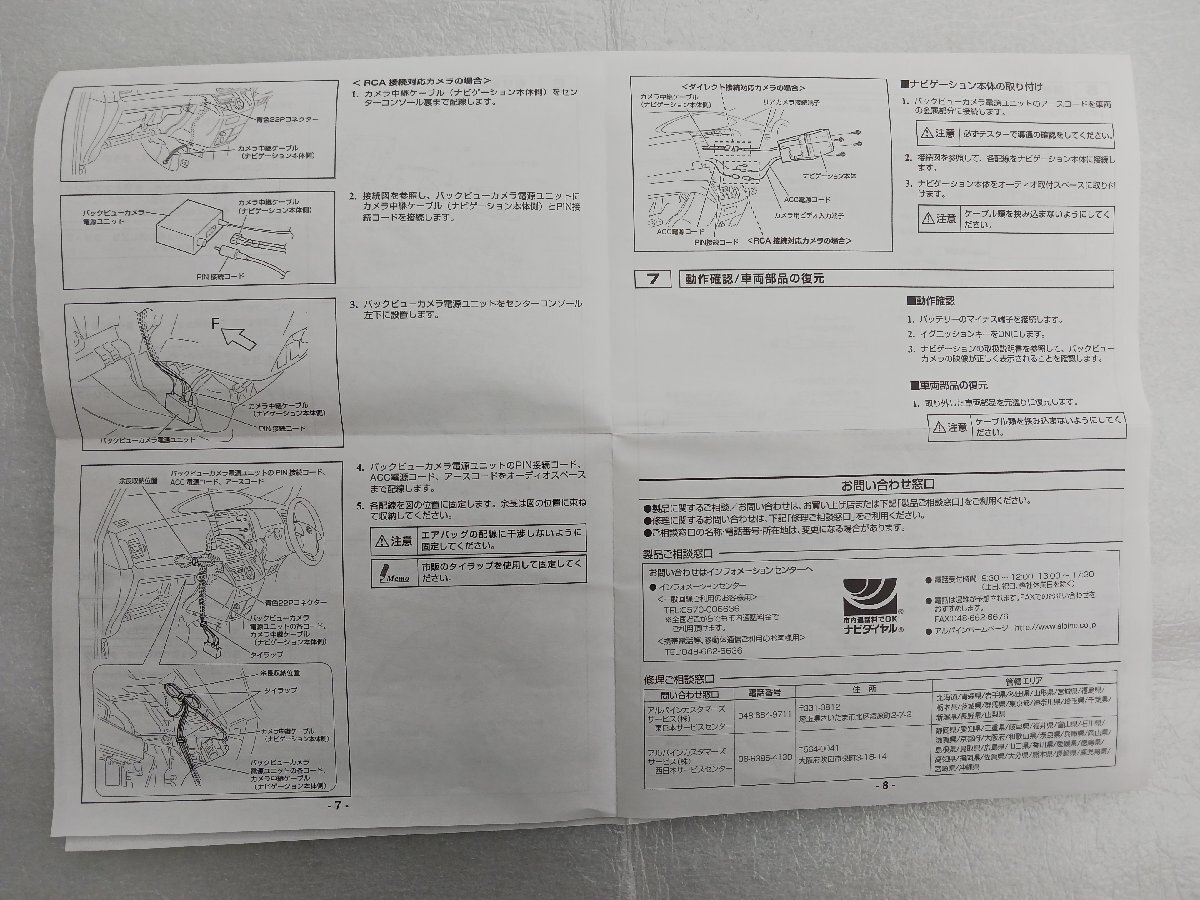 ＜RCA 接続対応カメラの場合＞
1. カメラ中継ケーブル（ナビゲーション本体側）をセン
ターコンソール裏まで配線します。
青色22Pコネクター
カメラ中継ケーブル
（ナビゲーション本体側）
2. 接続図を参照し、バックビューカメラ電源ユニットに
カメラ中継ケーブル（ナビゲーション本体側）とPIN接
続コードを接続します。
バックビューカメラ
電源ユニット
カメラ中継ケーブル
（ナビゲーション本体側）
PIN接続コード
3. バックビューカメラ電源ユニットをセンターコンソール
左下に設置します。
F
カメラ中継ケーブル
（ナビゲーション本体側）
PIN接続コード
バックビューカメラ電源ユニット
4. バックビューカメラ電源ユニットのPIN接続コード、
ACC電源コード、アースコードをオーディオスペース
まで配線します。
5. 各配線を図の位置に固定します。余長は図の位置に束ね
て収納してください。
注意
エアバッグの配線に干渉しないように
固定してください。
Memo
市販のタイラップを使用して固定してく
ださい。
余長収納位置
バックビューカメラ電源ユニットのPIN接続コード、
ACC電源コード、アースコード
青色22Pコネクター
バックビューカメラ
電源ユニットの各コード、
カメラ中継ケーブル
（ナビゲーション本体側）
タイラップ
余長収納位置
タイラップ
カメラ中継ケーブル
（ナビゲーション本体側）
バックビューカメラ
電源ユニットの各コード、
カメラ中継ケーブル
（ナビゲーション本体側）
- 7 -
＜ダイレクト接続対応カメラの場合＞
カメラ中継ケーブル
（ナビゲーション本体側）
リアカメラ接続端子
ナビゲーション本体
ACC電源コード
カメラ用ビデオ入力端子
ACC電源コード
PIN接続コード
＜RCA 接続対応カメラの場合＞
■ナビゲーション本体の取り付け
1. バックビューカメラ電源ユニットのアースコードを車両
の金属部分に接続します。
注意
必ずテスターで導通の確認をしてください。
2. 接続図を参照して、各配線をナビゲーション本体に接続し
ます。
3. ナビゲーション本体をオーディオ取付スペースに取り付
けます。
注意
ケーブル類を挟み込まないようにしてく
ださい。
7 動作確認/車両部品の復元
■動作確認
1. バッテリーのマイナス端子を接続します。
2. イグニッションキーをONにします。
3. ナビゲーションの取扱説明書を参照して、バックビュー
カメラの映像が正しく表示されることを確認します。
■車両部品の復元
1. 取り外した車両部品を元通りに復元します。
注意
ケーブル類を挟み込まないようにしてく
ださい。
お問い合わせ窓口
●製品に関するご相談／お問い合わせは、お買い上げ店または下記「製品ご相談窓口」をご利用ください。
●修理に関するお問い合わせは、下記「修理ご相談窓口」をご利用ください。
●ご相談窓口の名称・電話番号・所在地は、変更になる場合があります。
製品ご相談窓口
お問い合わせはインフォメーションセンターへ
● インフォメーションセンター
＜一般回線ご利用のお客様用＞
TEL:0570-006636
※全国どこからでも市内通話料金で
ご利用頂けます。
＜携帯電話等、移動体通信ご利用のお客様用＞
TEL:048-662-6636
市内通話料でOK
ナビダイヤル®
● 電話受付時間 9:30～12:00 13:00～17:30
（土日、祝日、弊社休業日を除く）
● 電話は混雑が予想されます。FAXでのお問い合わせを
おすすめします。
FAX:048-662-6676
● アルパインホームページ http://www.alpine.co.jp
修理ご相談窓口
問い合わせ窓口 電話番号 住 所 管轄エリア
アルパインカスタマーズ
サービス(株)
東日本サービスセンター
048-664-9711
〒331-0812
埼玉県さいたま市北区宮原町2-7-2
北海道/青森県/岩手県/秋田県/山形県/宮城県/福島県/
栃木県/茨城県/群馬県/東京都/神奈川県/埼玉県/千葉県/
新潟県/長野県/山梨県
アルパインカスタマーズ
サービス(株)
西日本サービスセンター
06-6386-4130
〒564-0041
大阪府吹田市泉町3-18-14
静岡県/愛知県/三重県/岐阜県/福井県/富山県/石川県/
滋賀県/京都府/大阪府/和歌山県/奈良県/兵庫県/岡山県/
島根県/鳥取県/広島県/山口県/香川県/愛媛県/徳島県/
高知県/福岡県/佐賀県/大分県/熊本県/長崎県/鹿児島県/
宮崎県/沖縄県
- 8 -